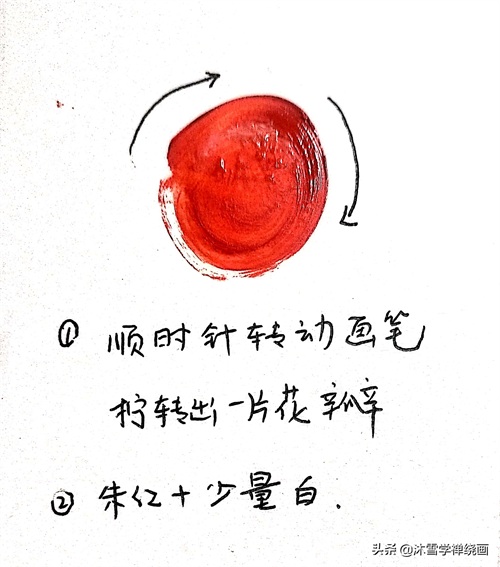 ① 顺时针转动画笔
拧转出一片花瓣
② 朱红+少量白.
头条@沐雪学禅绕画